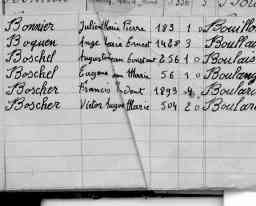 Bonnier Julien Marie Pierre 183 1 0 Bouillo
Boquen Ange Marie Ernest 1428 3 Boullai
Boschel Augustin Jean Constant 256 1 0 Boulais
Boschel Eugène Jean Marie 56 1 0 Boulang
Boscher Francis 1893 Boulard
Boscher Victor Auguste Marie 504 2 0 Boulard